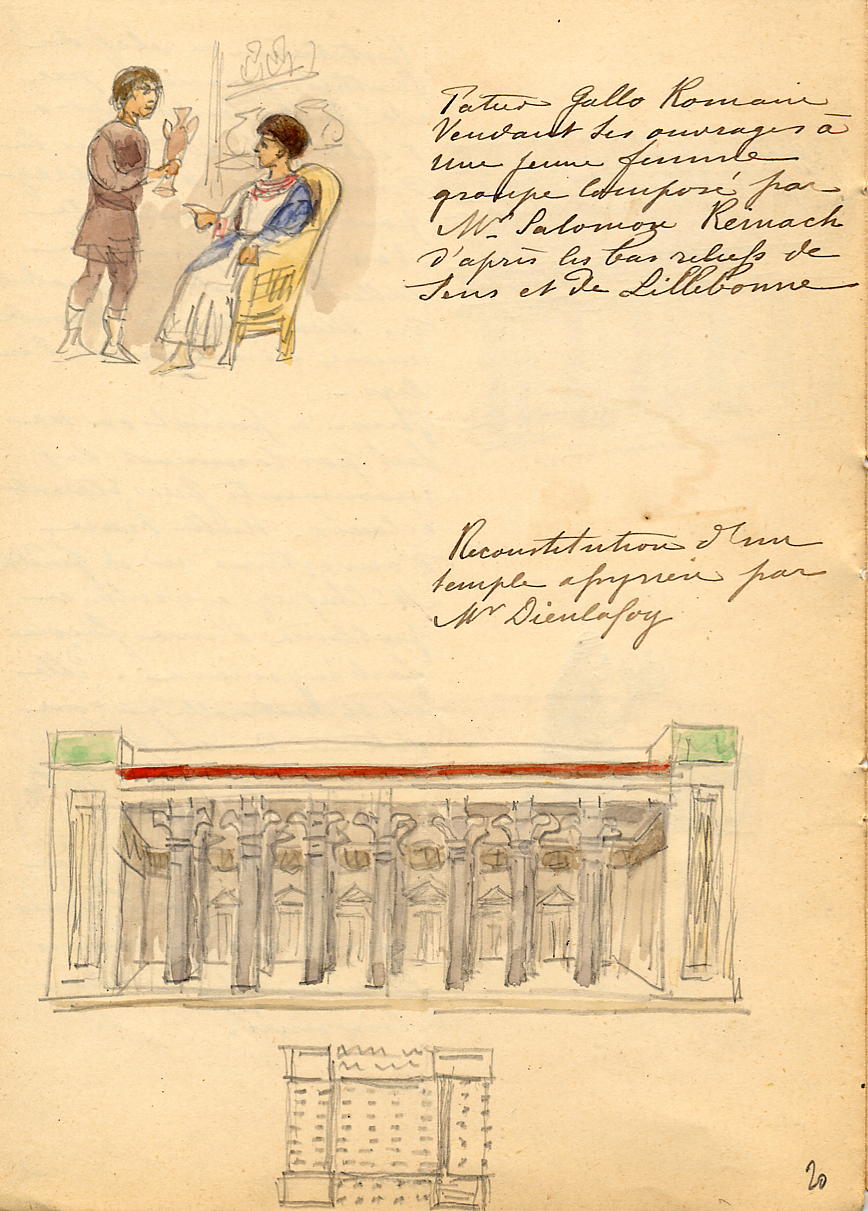 Potier Gallo Romain
Vendant ses ouvrages à
une jeune femme
groupe composé par
Mr Salomon Reinach
d'après les bas reliefs de
Sens et de Lillebonne
Reconstitution d'un
temple assyrien par
Mr Dieulafoy
20